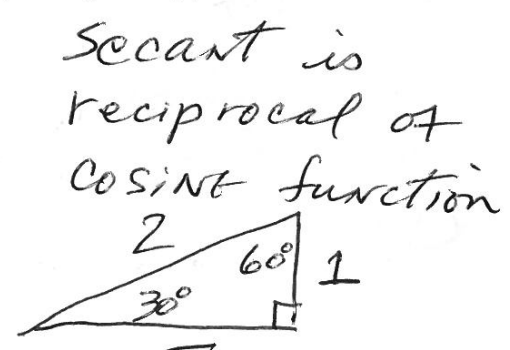 Secant is
reciprocal of
COSINE function
2
60° 1
30°